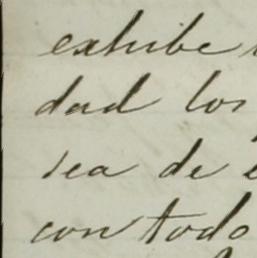 exhibe
dad los
sea de
con todo